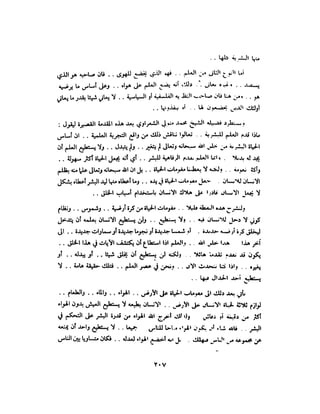 منها البشرية كلها ..
أما النوع الثاني من العلم .. فهو الذي يخضع للهوى .. فان صاحبه هو الذي
يضعه .. وعلى أساس ما يرضيه
هو .. ومن هنا فان صاحب النظرية الفلسفية أو السياسية .. لا يعاني شيئا بقدر ما يعاني
أولئك الذين يخضعون لها .. أو ينفذونها ..
ويستطرد فضيلة الشيخ محمد متولي الشعراوي بعد هذه المقدمة القصيرة ليقول :
ماذا قدم العلم للبشرية .. تعالوا نناقش ذلك من واقع التجربة العلمية .. ان أساس
الحياة البشرية من خلق الله سبحانه وتعالى لم يتغير .. ولم يتبدل .. ولا يستطيع العلم أن
يجد له بديلا .. انما العلم يقدم الرفاهية للبشر .. أي أنه يجعل الحياة أكثر سهولة ..
وأكثر نعومة .. ولكنه لا يعطينا مقومات الحياة .. بل ان الله سبحانه وتعالى علما منه بظلم
الانسان للانسان جعل مقومات الحياة في يده .. وما أعطاه منها ليد البشر أعطاه بشكل
لا يجعل الانسان قادرا على هلاك الانسان باستخدام أسباب الخلق ..
ولنشرح هذه النقطة قليلا .. مقومات الحياة من كرة أرضية .. وشموس .. ونظام
كوني لا دخل للانسان فيه .. ولا يستطيع .. ولن يستطيع الانسان بعلمه أن يتدخل
ليخلق كرة أرضية جديدة .. أو شمسا جديدة أو نجوما جديدة أو سماوات جديدة .. الى
آخر هذا .. هذا خلق الله .. والعلم اذا استطاع أن يكتشف الآيات في هذا الخلق ..
يكون قد تقدم تقدما هائلا .. ولكنه لن يستطيع أن يخلق شيئا .. أو يبدله .. أو
يغيره .. واذا كنا نتحدث الآن .. ونحن في عصر العلم .. فتلك حقيقة هامة .. لا
يستطيع أحد الجدال فيها ..
يأتي بعد ذلك الى مقومات الحياة على الأرض .. الهواء .. والماء .. والطعام ..
لوازم ثلاثة لحياة الانسان على الأرض .. الانسان بطبعه لا يستطيع العيش بدون الهواء
أكثر من دقيقة أو دقائق .. ولذلك أخرج الله الهواء من قدرة البشر على التحكم في
البشر .. فالله شاء أن يكون الهواء متاحا للناس جميعا .. لا يستطيع واحد أن يمنعه
عن مجموعة من الناس فيهلك .. بل انه أخضع الهواء لعدله .. فكان متساويا بين الناس
٢٠٧